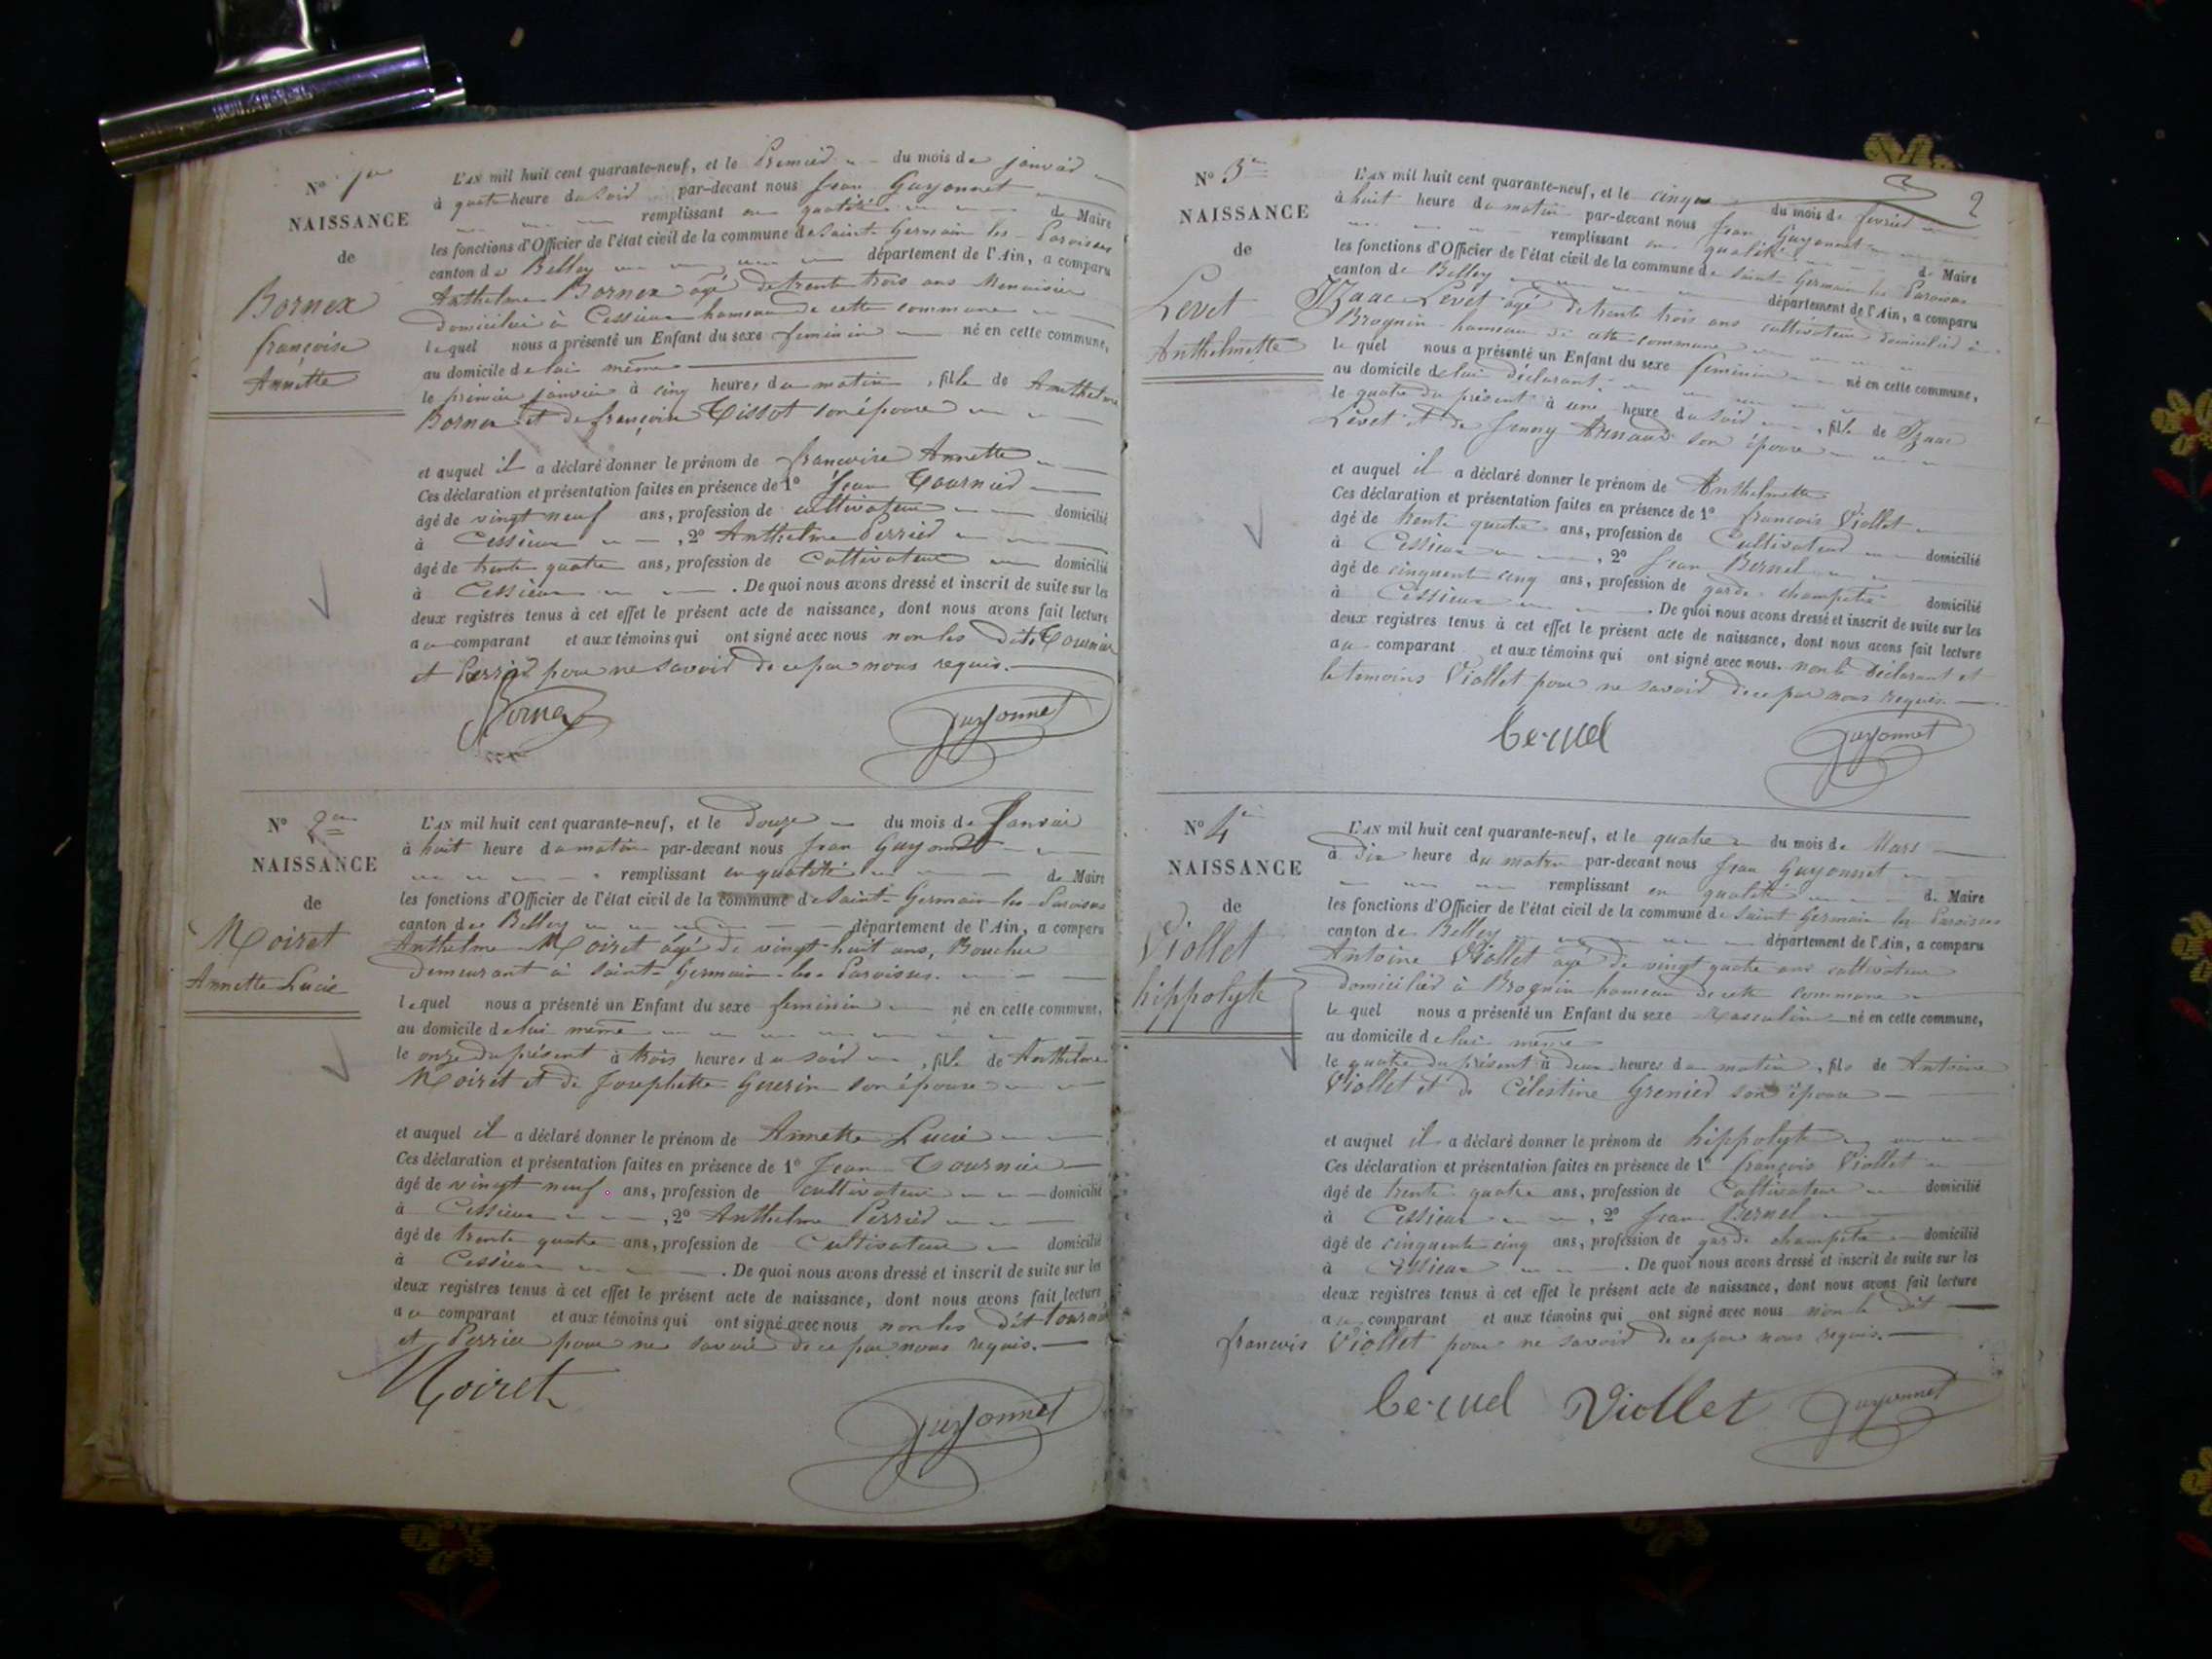 N° 1er
NAISSANCE
de
Bornex
françoise
Annette
L'AN mil huit cent quarante-neuf, et le Premier du mois de janvier
à quatre heure du soir par-devant nous Jean Guyonnet
remplissant en qualité de Maire
les fonctions d'Officier de l'état civil de la commune de Saint Germain les Paroisses
canton de Belley département de l'Ain, a comparu
Anthelme Bornex agé de trente trois ans Menuisier
domicilié à Cessieux hameau de cette commune
lequel nous a présenté un Enfant du sexe feminin né en cette commune,
au domicile de lui même
le premier janvier à cinq heures du matin, fille de Anthelme
Bornex et de françoise Tissot son épouse
et auquel il a déclaré donner le prénom de francoise Annette
Ces déclaration et présentation faites en présence de 1° Jean Tournier
âgé de vingt neuf ans, profession de cultivateur domicilié
à Cessieux, 2° Anthelme Perrier
âgé de trente quatre ans, profession de Cultivateur domicilié
à Cessieux. De quoi nous avons dressé et inscrit de suite sur les
deux registres tenus à cet effet le présent acte de naissance, dont nous avons fait lecture
au comparant et aux témoins qui ont signé avec nous non les dits Tournier
et Perrier pour ne savoir de ce par nous requis.
Bornex Guyonnet
N° 2em
NAISSANCE
de
Moiret
Annette Lucie
L'AN mil huit cent quarante-neuf, et le douze du mois de Janvier
à huit heure du matin par-devant nous Jean Guyonnet
remplissant en qualité de Maire
les fonctions d'Officier de l'état civil de la commune de Saint Germain les Paroisses
canton de Belley département de l'Ain, a comparu
Anthelme Moiret âgé de vingt huit ans, Boucher
demeurant à Saint Germain les Paroisses.
lequel nous a présenté un Enfant du sexe feminin né en cette commune,
au domicile de lui même
le onze du présent à trois heures du soir, fille de Anthelme
Moiret et de Josephette Guerin son épouse
et auquel il a déclaré donner le prénom de Annette Lucie
Ces déclaration et présentation faites en présence de 1° Jean Tournier
âgé de vingt neuf ans, profession de cultivateur domicilié
à Cessieux, 2° Anthelme Perrier
âgé de trente quatre ans, profession de Cultivateur domicilié
à Cessieux. De quoi nous avons dressé et inscrit de suite sur les
deux registres tenus à cet effet le présent acte de naissance, dont nous avons fait lecture
au comparant et aux témoins qui ont signé avec nous non les dit Tournier
et Perrier pour ne savoir de ce par nous requis.
Moiret Guyonnet
2
N° 3e
NAISSANCE
de
Levet
Anthelmette
L'AN mil huit cent quarante-neuf, et le cinq du mois de fevrier
à huit heure du matin par-devant nous Jean Guyonnet
remplissant en qualité de Maire
les fonctions d'Officier de l'état civil de la commune de Saint Germain les Paroisses
canton de Belley département de l'Ain, a comparu
Izaac Levet âgé de trente trois ans cultivateur domicilié à
Brognin hameau de cette commune
lequel nous a présenté un Enfant du sexe feminin né en cette commune,
au domicile de lui déclarant
le quatre du présent à une heure du soir, fille de Izaac
Levet et de Jenny Arnaud son épouse
et auquel il a déclaré donner le prénom de Anthelmette
Ces déclaration et présentation faites en présence de 1° francois Viollet
âgé de trente quatre ans, profession de Cultivateur domicilié
à Cessieux, 2° Jean Bernel
âgé de cinquante cinq ans, profession de garde champetre domicilié
à Cessieux. De quoi nous avons dressé et inscrit de suite sur les
deux registres tenus à cet effet le présent acte de naissance, dont nous avons fait lecture
au comparant et aux témoins qui ont signé avec nous. non le déclarant et
le temoins Viollet pour ne savoir de ce par nous requis.
bernel Guyonnet
N° 4e
NAISSANCE
de
Viollet
hippolyte
L'AN mil huit cent quarante-neuf, et le quatre du mois de Mars
à dix heure du matin par-devant nous Jean Guyonnet
remplissant en qualité de Maire
les fonctions d'Officier de l'état civil de la commune de Saint Germain les Paroisses
canton de Belley département de l'Ain, a comparu
Antoine Viollet agé de vingt quatre ans cultivateur
domicilié à Brognin hameau de cette commune
lequel nous a présenté un Enfant du sexe Masculin né en cette commune,
au domicile de lui même
le quatre du présent à deux heures du matin, fils de Antoine
Viollet et de Célestine Grenier son épouse
et auquel il a déclaré donner le prénom de hippolyte
Ces déclaration et présentation faites en présence de 1° françois Viollet
âgé de trente quatre ans, profession de Cultivateur domicilié
à Cessieux, 2° Jean Bernel
âgé de cinquante cinq ans, profession de garde champetre domicilié
à Cessieux. De quoi nous avons dressé et inscrit de suite sur les
deux registres tenus à cet effet le présent acte de naissance, dont nous avons fait lecture
au comparant et aux témoins qui ont signé avec nous non le dit
francois Viollet pour ne savoir de ce par nous requis.
bernel Viollet Guyonnet